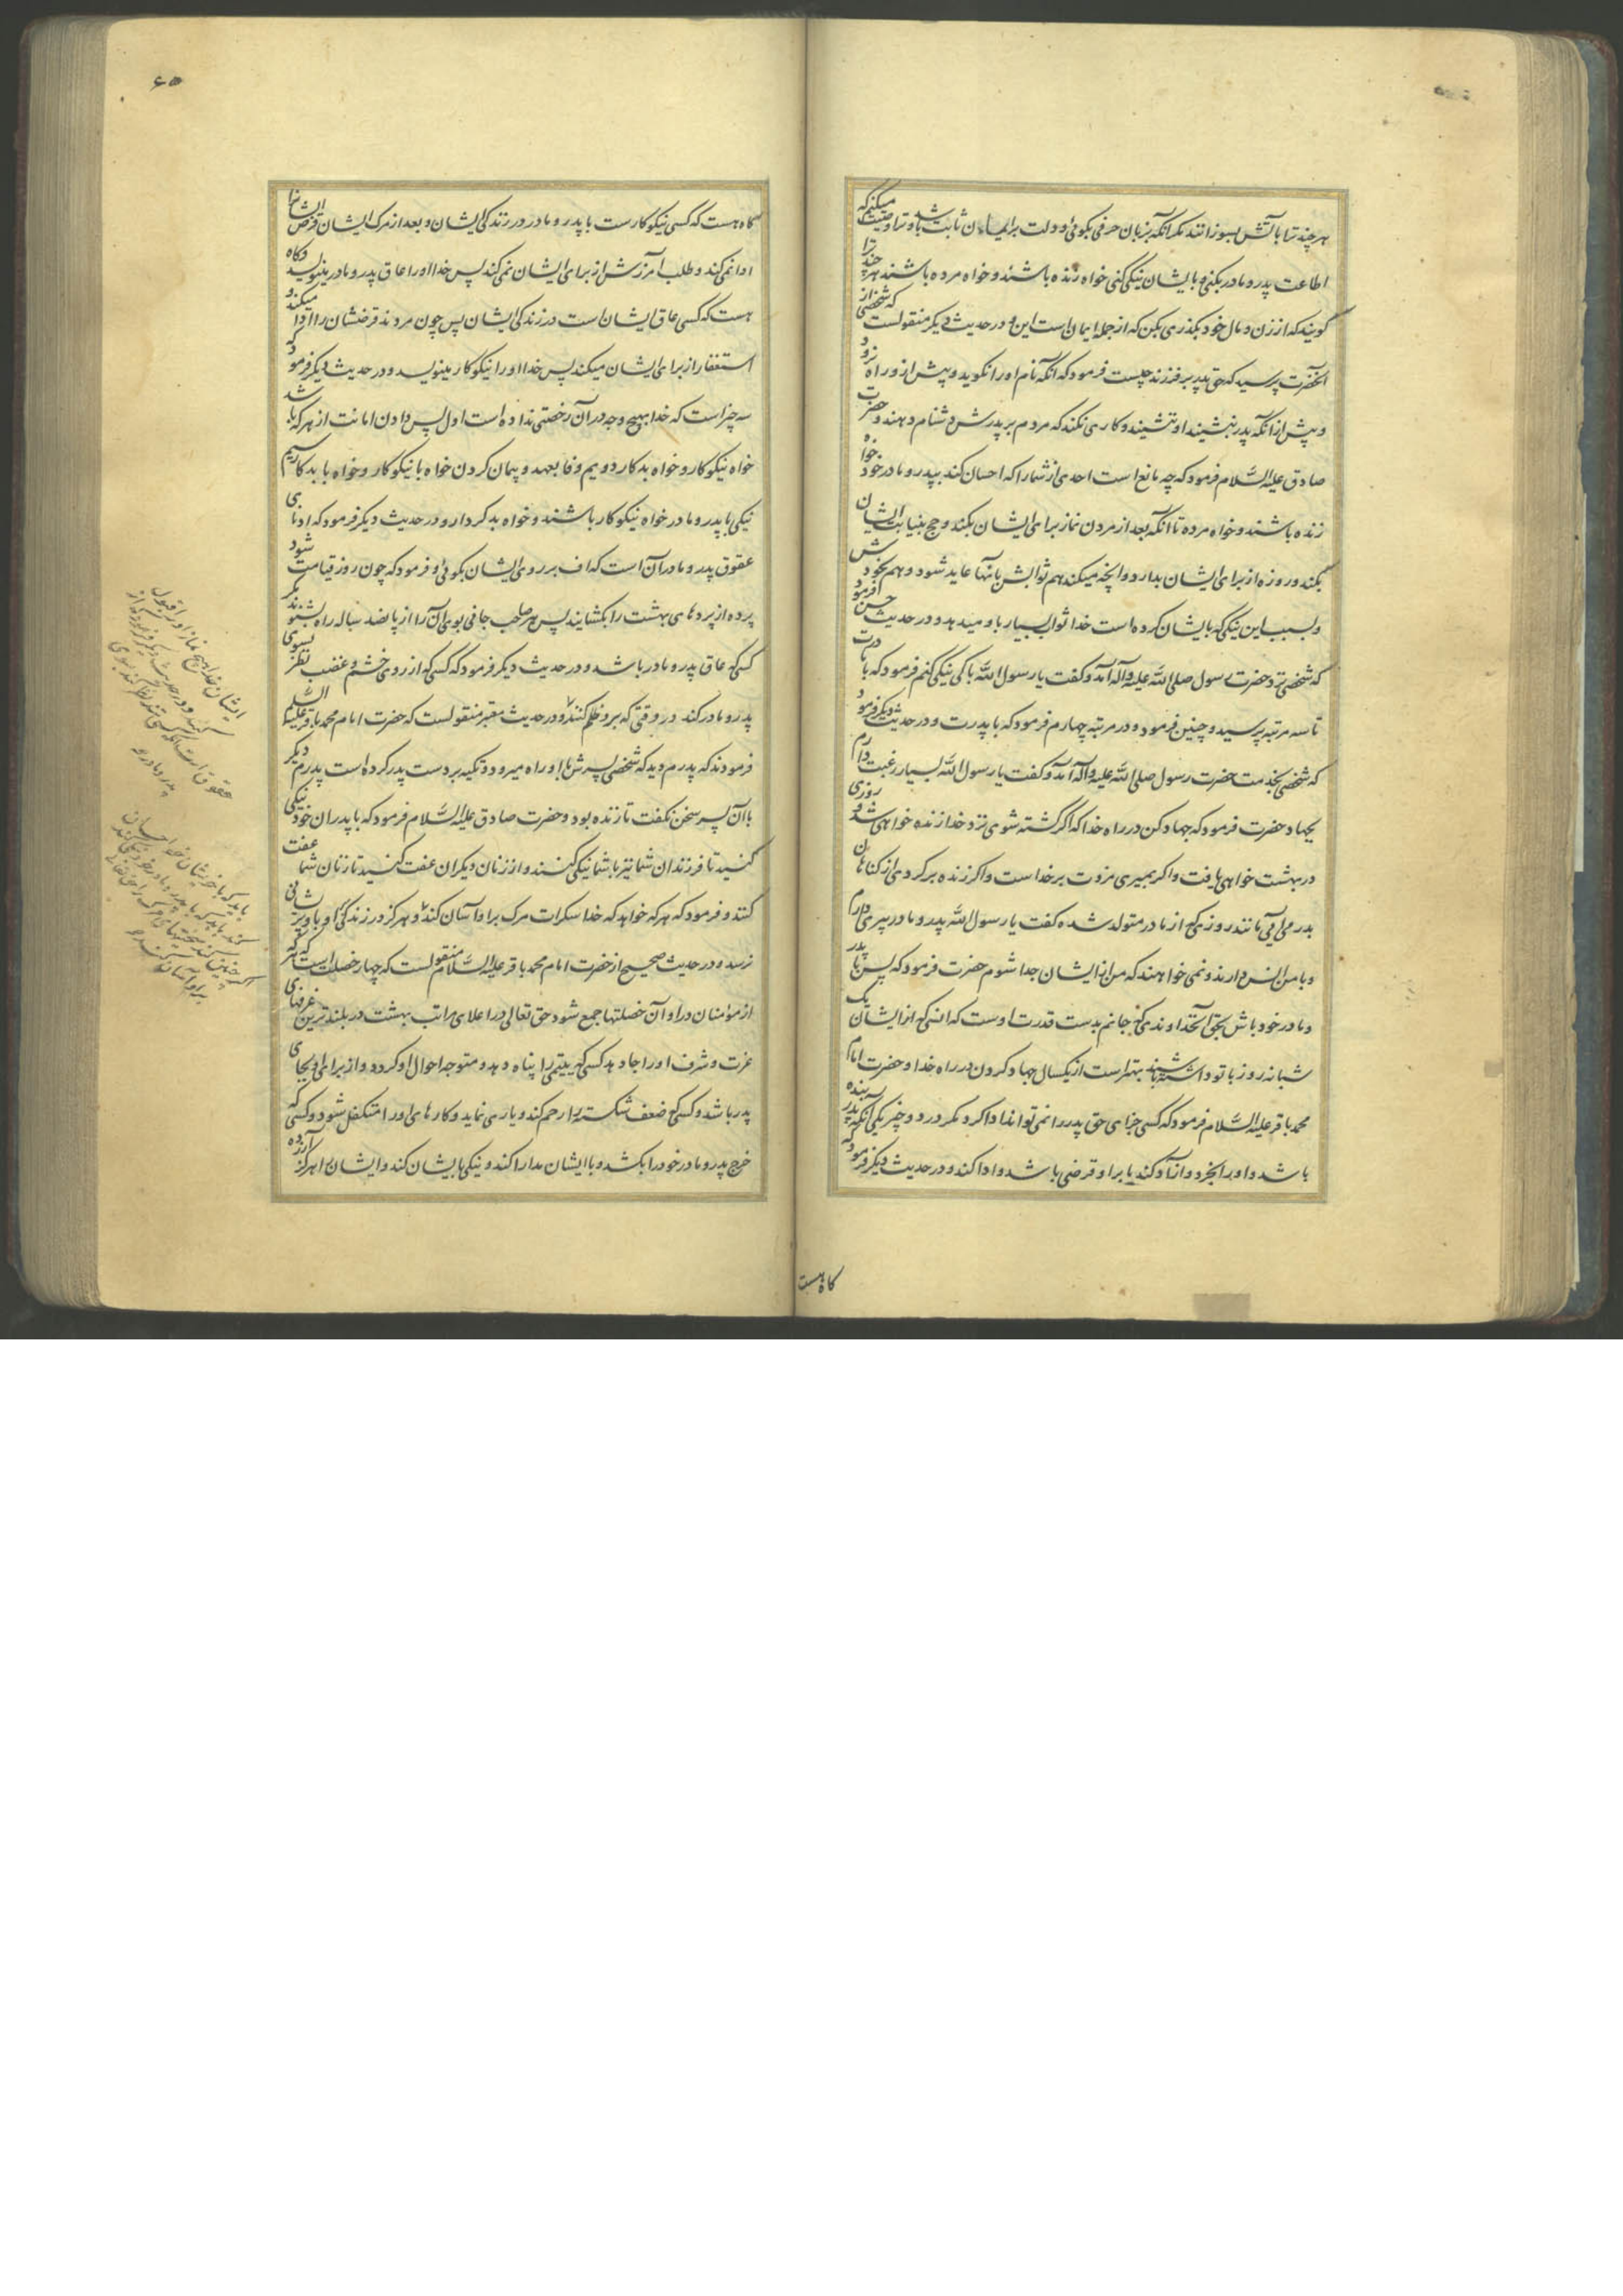 هر چند ترا بآتش بسوزانند مگر آنکه بزبان حرفی بگوئی و دلت بر ایمان ثابت باشد و ترا وصیت میکنم که
اطاعت پدر و مادر بکنی و بایشان نیکی کنی خواه زنده باشند و خواه مرده باشند هر چند ترا
گویند که از زن و مال خود بگذری بکن که از جمله ایمان است این و در حدیث دیگر منقولست که شخصی از
آنحضرت پرسید که حق پدر بر فرزند چیست فرمود که آنکه نام او را نگوید و پیش از او راه نرود
و پیش از آنکه پدر بنشیند او ننشیند و کاری نکند که مردم بر پدرش دشنام دهند و حضرت
صادق علیه السّلام فرمود که چه مانع است احدی از شما را که احسان کند بپدر و مادر خود خواه
زنده باشند و خواه مرده تا آنکه بعد از مردن نماز برای ایشان بکند و حج بنیابت ایشان
بکند و روزه از برای ایشان بدارد و آنچه میکند هم ثوابش بآنها عاید شود و هم بخودش
و بسبب این نیکی که بایشان کرده است خدا ثواب بسیار باو میدهد و در حدیث حسن فرمود
که شخصی نزد حضرت رسول صلی الله علیه وآله آمد و گفت یا رسول الله با کی نیکی کنم فرمود که با مادرت
تا سه مرتبه پرسید و چنین فرمود و در مرتبه چهارم فرمود که با پدرت و در حدیث دیگر فرمود
که شخصی بخدمت حضرت رسول صلی الله علیه وآله آمد و گفت یا رسول الله بسیار رغبت دارم
بجهاد حضرت فرمود که جهاد کن در راه خدا که اگر کشته شوی نزد خدا زنده خواهی شد و روزی
در بهشت خواهی یافت و اگر بمیری مزدت بر خداست و اگر زنده برگردی از گناهان
بدر می آیی مانند روزی که از مادر متولد شده گفت یا رسول الله پدر و مادر پیری دارم
و با من انس دارند و نمی خواهند که من از ایشان جدا شوم حضرت فرمود که پس با پدر
و مادر خود باش بحق آنخداوندی که جانم بدست قدرت اوست که انسی که از ایشان یک
شبانه روز با تو داشته باشند بهتر است از یکسال جهاد کردن در راه خدا و حضرت امام
محمد باقر علیه السّلام فرمود که کسی جزای حق پدر را نمی تواند ادا کرد مگر در دو چیز یکی آنکه پدر بنده
باشد و او را بخرد و آزاد کند یا بر او قرضی باشد و ادا کند و در حدیث دیگر فرمود که
گاه هست
۶۵
گاه هست که کسی نیکوکار ست با پدر و مادر در زندگی ایشان و بعد از مرک ایشان قرض ایشانرا
ادا نمی کند و طلب آمرزش از برای ایشان نمی کند پس خدا او را عاق پدر و مادر مینویسد و گاه
هست که کسی عاق ایشان است در زندگی ایشان پس چون مردند قرضشان را ادا میکند و
استغفار از برای ایشان میکند پس خدا او را نیکوکار مینویسد و در حدیث دیگر فرمود که
سه چیز است که خدا بهیچ وجه در آن رخصتی نداده است اول پس دادن امانت از هر که باشد
خواه نیکوکار و خواه بدکار دویم وفا بعهد و پیمان کردن خواه با نیکوکار و خواه با بدکار سیم
نیکی با پدر و مادر خواه نیکوکار باشند و خواه بدکردار و در حدیث دیگر فرمود که ادنای
عقوق پدر و مادر آن است که اف بر روی ایشان بگوئی و فرمود که چون روز قیامت شود
پرده از پردهای بهشت را بکشایند پس هر صاحب جانی بوی آن را از پانصد ساله راه بشنود مگر
کسی که عاق پدر و مادر باشد و در حدیث دیگر فرمود که کسی که از روی خشم و غضب نظر بسوی
پدر و مادر کند در وقتی که برو ظلم کنند و در حدیث معتبر منقولست که حضرت امام محمد باقر علیه السّلم
فرمودند که پدرم دید که شخصی پسرش با او راه میرود و تکیه بر دست پدر کرده است پدرم دیگر
با آن پسر سخن نگفت تا زنده بود و حضرت صادق علیه السّلام فرمود که با پدران خود نیکی
کنید تا فرزندان شما نیز با شما نیکی کنند و از زنان دیگران عفت کنید تا زنان شما عفت
کنند و فرمود که هر که خواهد که خدا سکرات مرک بر او آسان کند و هرگز در زندگی او باو پریشانی
نرسد و در حدیث صحیح از حضرت امام محمد باقر علیه السّلام منقولست که چهار خصلت است که هر که
از مؤمنان در او آن خصلتها جمع شود حق تعالی در اعلای مراتب بهشت در بلندترین غرفهای
عزت و شرف او را جا دهد کسی که یتیمی را پناه دهد و متوجه احوال او گردد و از برای او بجای
پدر باشد و کسی که ضعف شکسته را رحم کند و یاری نماید و کارهای او را متکفل شود و کسی که
خرج پدر و مادر خود را بکشد و با ایشان مدارا کند و نیکی بایشان کند و ایشان را هرگز آزرده
ایشان خدا هیچ نماز او را قبول
نکند و در حدیث دیگر فرمود از
عقوق است که کسی تند نظر کند بسوی
پدر و مادر
باید که با خویشان خود احسان
کند باید که با پدر و مادر خود نیکی کند
اگر چنین کند سختیهای مرک را حق تعالی
بر او آسان کند